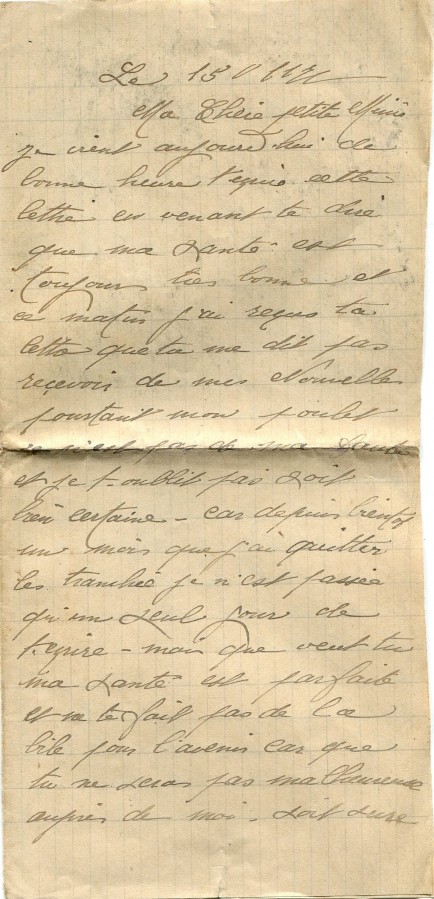 Le 15
Ma Cherie petite Mimi
je vient aujourd'hui de
bonne heure t'ecrire cette
lettre en venant te dire
que ma santé est
toujours tres bonne et
ce matin j'ai reçus ta
lettre que tu me dit pas
reçevoir de mes Nouvelles
pourtant mon poulet
n'est pas de ma faute
et je t'oublit pas soit
bien certaine - car depuis bientot
un mois que j'ai quitter
les tranchée je n'est passée
qu'un seul jour de
t'ecrire - mais que veut tu
ma santé est parfaite
et ne te fait pas de la
bile pour l'avenir car que
tu ne seras pas malheureuse
auprès de moi. soit sure